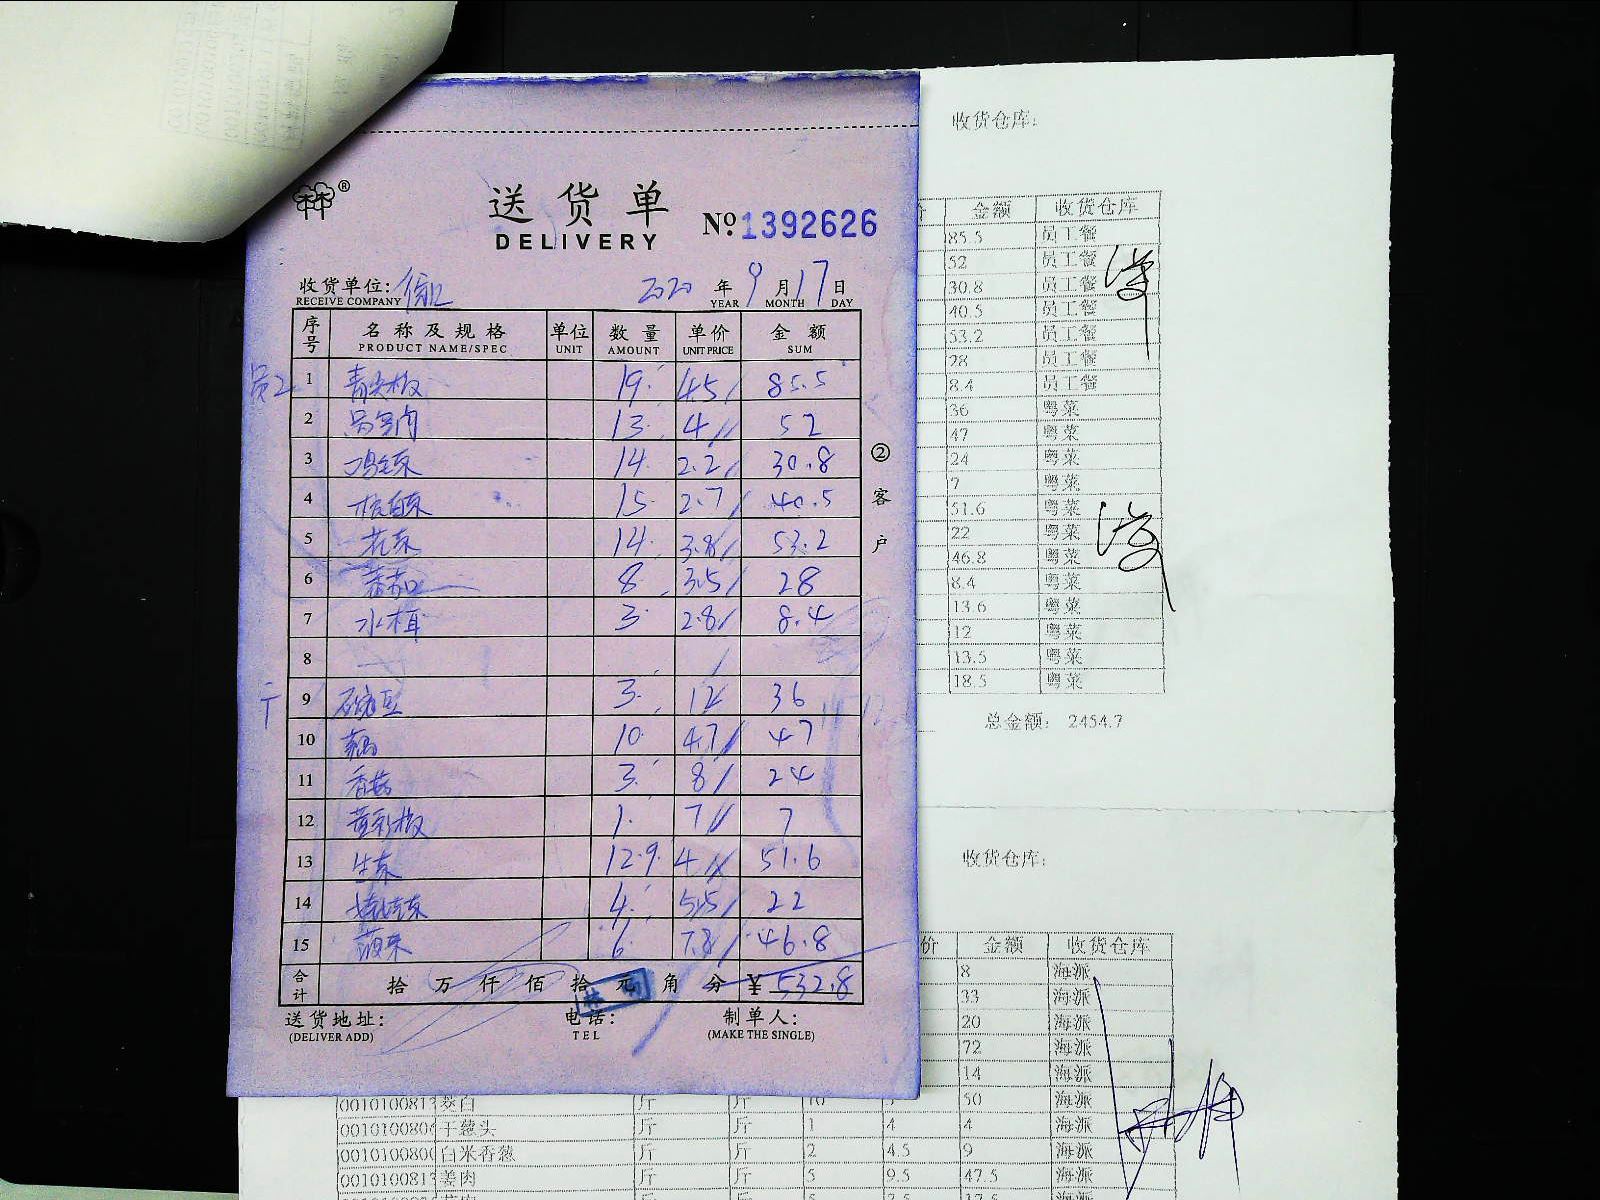 送货单
DELIVERY
№ 1392626
收货单位:
RECEIVE COMPANY
2020 年 9 月 17 日
YEAR MONTH DAY
序号 名称及规格 单位 数量 单价 金额
PRODUCT NAME/SPEC UNIT AMOUNT UNIT PRICE SUM
员工
1 青尖椒 19 4.5 85.5
2 13 4 52
3 14 2.2 30.8
4 15 2.7 40.5
5 花菜 14 3.8 53.2
6 8 3.5 28
7 水 3 2.8 8.4
8
9 3 12 36
10 10 4.7 47
11 香菇 3 8 24
12 黄彩椒 1 7 7
13 生菜 12.9 4 51.6
14 4 5.5 22
15 菠菜 6 7.8 46.8
合计 拾 万 仟 佰 拾 元 角 分 ¥ 532.8
送货地址: 电话: 制单人:
(DELIVER ADD) TEL (MAKE THE SINGLE)
②客户
收货仓库:
金额 收货仓库
85.5 员工餐
52 员工餐
30.8 员工餐
40.5 员工餐
53.2 员工餐
28 员工餐
8.4 员工餐
36 粤菜
47 粤菜
24 粤菜
7 粤菜
51.6 粤菜
22 粤菜
46.8 粤菜
8.4 粤菜
13.6 粤菜
12 粤菜
13.5 粤菜
18.5 粤菜
总金额: 2454.7
收货仓库:
价 金额 收货仓库
8 海派
33 海派
20 海派
72 海派
14 海派
茭白 斤 斤 10 50 海派
干葱头 斤 斤 1 4 4 海派
白米香葱 斤 斤 2 4.5 9 海派
姜肉 斤 斤 5 9.5 47.5 海派